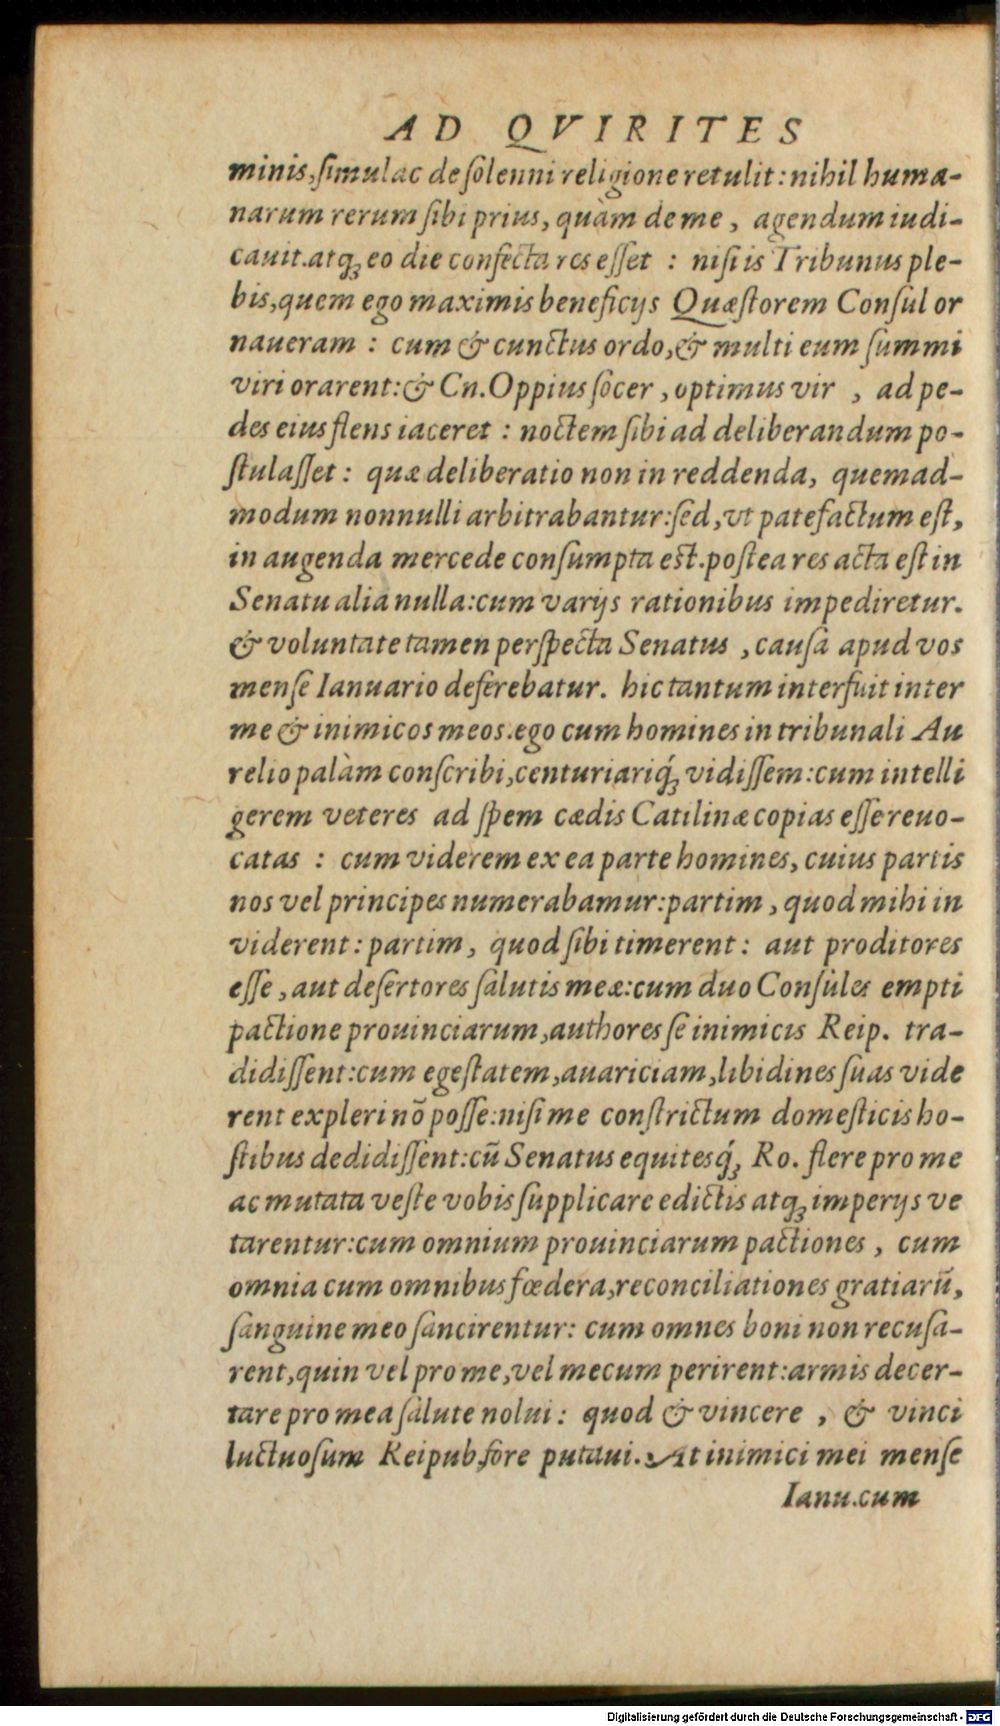 AD QVIRITES
minis,ſimulac de ſolenni religione retulit: nihil huma-
narum rerum ſibi prius, quàm de me, agendum iudi-
cauit.atq́ꝫ eo die confecta res eſſet : niſi is Tribunus ple-
bis,quem ego maximis beneficijs Quæſtorem Conſul or
naueram : cum & cunctus ordo,& multi eum ſummi
viri orarent:& Cn.Oppius ſocer, optimus vir , ad pe-
des eius flens iaceret : noctem ſibi ad deliberandum po-
ſtulaſſet: quæ deliberatio non in reddenda, quemad-
modum nonnulli arbitrabantur:ſed,vt patefactum eſt,
in augenda mercede conſumpta eſt.poſtea res acta eſt in
Senatu alia nulla:cum varijs rationibus impediretur.
& voluntate tamen perſpecta Senatus ,cauſa apud vos
menſe Ianuario deferebatur. hic tantum interfuit inter
me & inimicos meos.ego cum homines in tribunali Au
relio palàm conſcribi,centuriariq́ꝫ vidiſſem:cum intelli
gerem veteres ad ſpem cædis Catilinæ copias eſſe reuo-
catas : cum viderem ex ea parte homines, cuius partis
nos vel principes numerabamur:partim, quod mihi in
viderent: partim, quod ſibi timerent: aut proditores
eſſe, aut deſertores ſalutis meæ:cum duo Conſules empti
pactione prouinciarum,authores ſe inimicis Reip. tra-
didiſſent:cum egeſtatem,auariciam,libidines ſuas vide
rent expleri nõ poſſe:niſi me conſtrictum domeſticis ho-
ſtibus dedidiſſent:cũ Senatus equitesq́ꝫ Ro. flere pro me
ac mutata veſte vobis ſupplicare edictis atqꝫ imperijs ve
tarentur:cum omnium prouinciarum pactiones, cum
omnia cum omnibus fœdera,reconciliationes gratiarũ,
ſanguine meo ſancirentur: cum omnes boni non recuſa-
rent,quin vel pro me,vel mecum perirent:armis decer-
tare pro mea ſalute nolui: quod & vincere , & vinci
luctuoſum Reipub.fore putaui. At inimici mei menſe
Ianu.cum
Digitalisierung gefördert durch die Deutsche Forschungsgemeinschaft - DFG